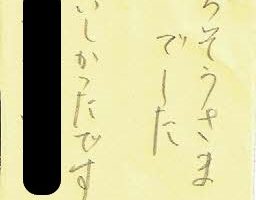 ちそうさま
でした
いしかったです